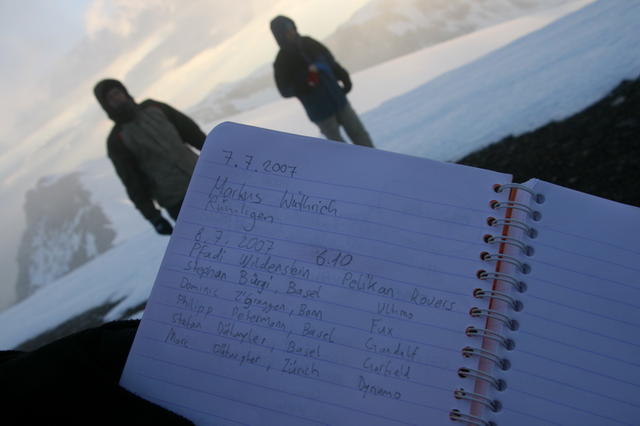 7.7.2007
Markus Wüthrich
Rümligen
8.7.2007 6.10
Pfadi Wildenstein Pelikan Rovers
Stephan Bürgi, Basel Ultimo
Dominic Zgraggen, Bonn Fux
Philipp Petermann, Basel Gandalf
Stefan Dätwyler, Basel Garfield
Marc Dätwyler, Zürich Dynamo